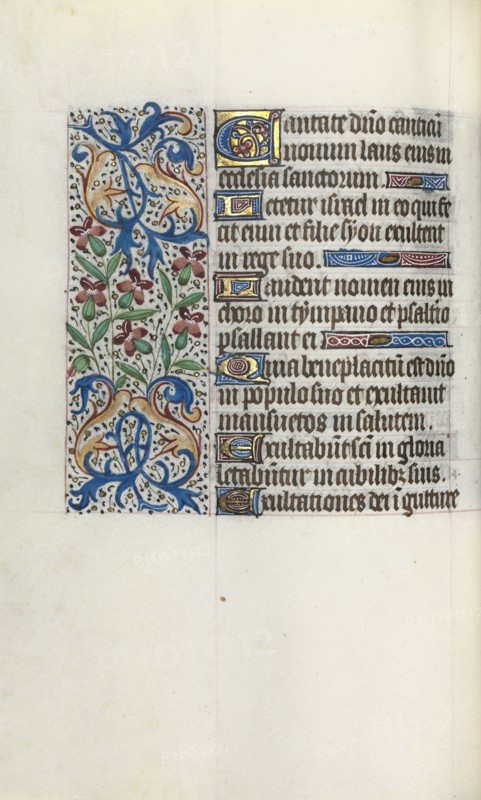 Cantate dño canticũ
nouum laus eius in
ecclesia sanctorum.
Letetur israel in eo qui fe
cit eum et filie syon exultent
in rege suo.
Laudent nomen eius in
choro in tympano et psaltio
psallant ei
Quia beneplacitũ est dño
in populo suo et exultauit
mansuetos in salutem.
Exultabũt scĩ in gloria
letabuntur in cubilibꝫ suis.
Exultationes dei ĩ gutture